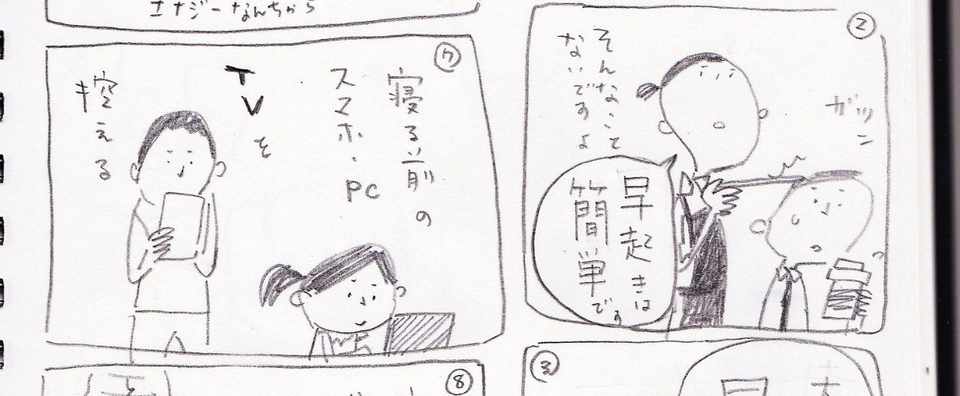 ②
ガツン
そんなこと
ないですよ
早起きは
簡単です
③
エナジーなんちゃら
⑦
寝る前の
スマホ・PC
TVを
控える
⑧